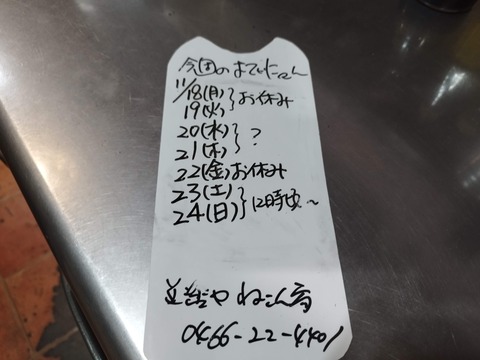 今週のまでいにゃん
11/18(月)
19(火)}お休み
20(水)
21(木)}?
22(金)お休み
23(土)
24(日)}12時頃~
ねこ
0466-22-4401